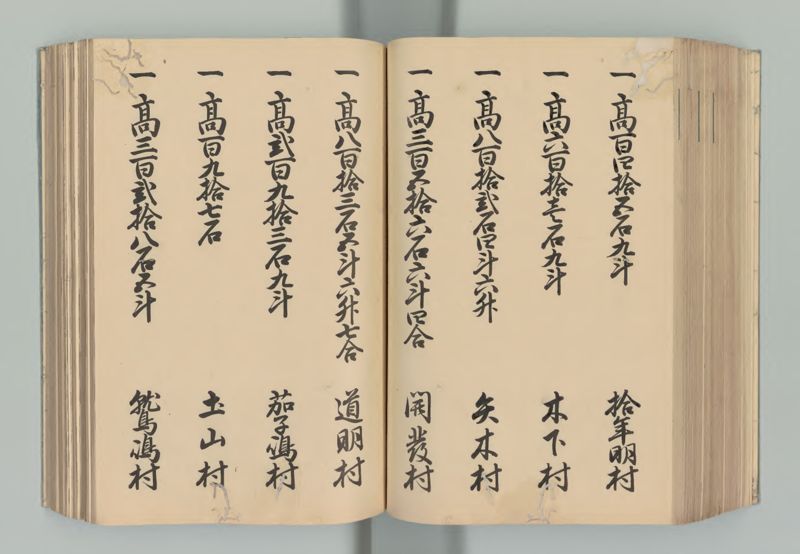 一 高百四拾五石九斗 拾年明村
一 高六百拾壱石九斗 木下村
一 高八百拾弐石四斗六升 矢木村
一 高三百五拾六石六斗四合 開発村
一 高八百拾三石五斗六升七合 道明村
一 高弐百九拾三石九斗 茄子嶋村
一 高百九拾七石 土山村
一 高三百弐拾八石五斗 鷲嶋村